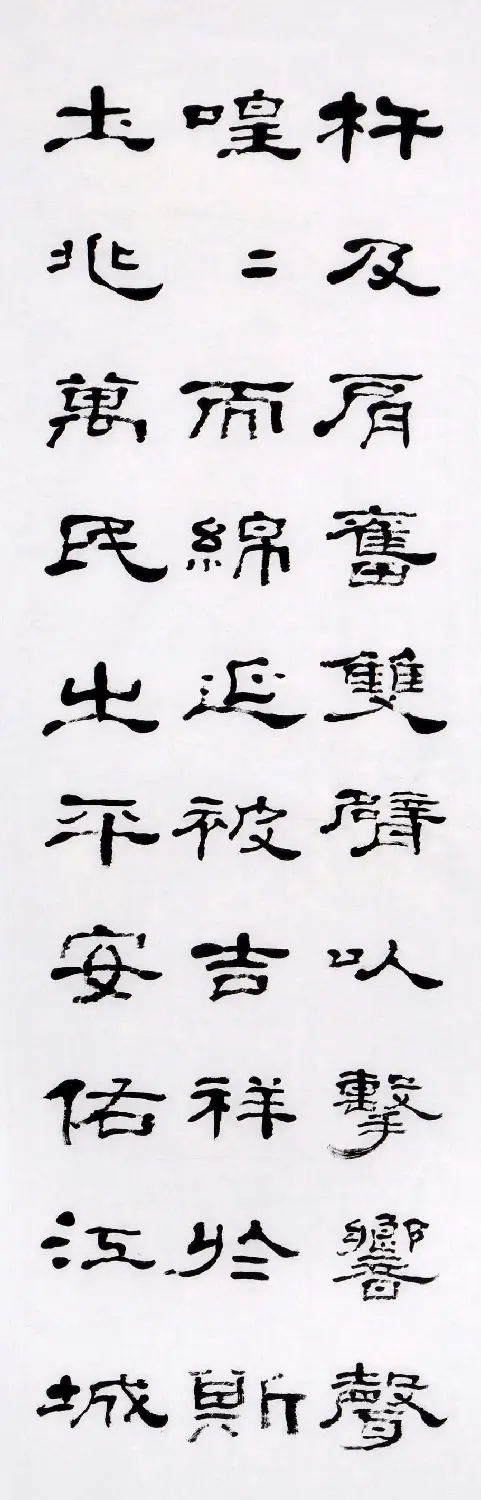 杵及肩奮雙臂以擊響聲
喤〻而綿延被吉祥於斯
土兆萬民之平安佑江城